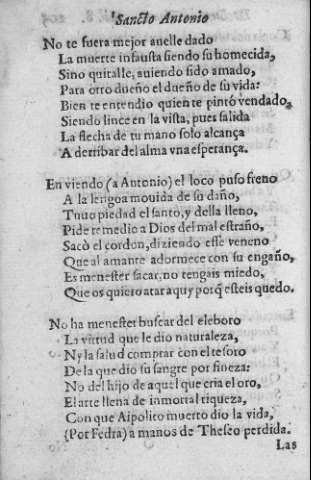 Sancto Antonio
No te fuera mejor auelle dado
La muerte infausta siendo su homecida,
Sino quitalle, auiendo sido amado,
Para otro dueño el dueño de su vida:
Bien te entendio quien te pintó vendado,
Siendo lince en la vista, pues salida
La flecha de tu mano solo alcança
A derribar del alma vna esperança.
En viendo (a Antonio) el loco puso freno
A la lengoa mouida de su daño,
Tuuo piedad el santo, y della lleno,
Pide remedio a Dios del mal estraño,
Sacò el cordon, diziendo esse veneno
Que al amante adormece con su engaño,
Es menester sacar, no tengais miedo,
Que os quiero atar aquy porq̃ esteis quedo.
No ha menester buscar del eleboro
La virtud que le dio naturaleza,
Ny la salud comprar con el tesoro
De la que dio su sangre por fineza:
No del hijo de aquel que cria el oro,
El arte llena de inmortal riqueza,
Con que Aipolito muerto dio la vida,
(Por Fedra) a manos de Theseo perdida.
Las